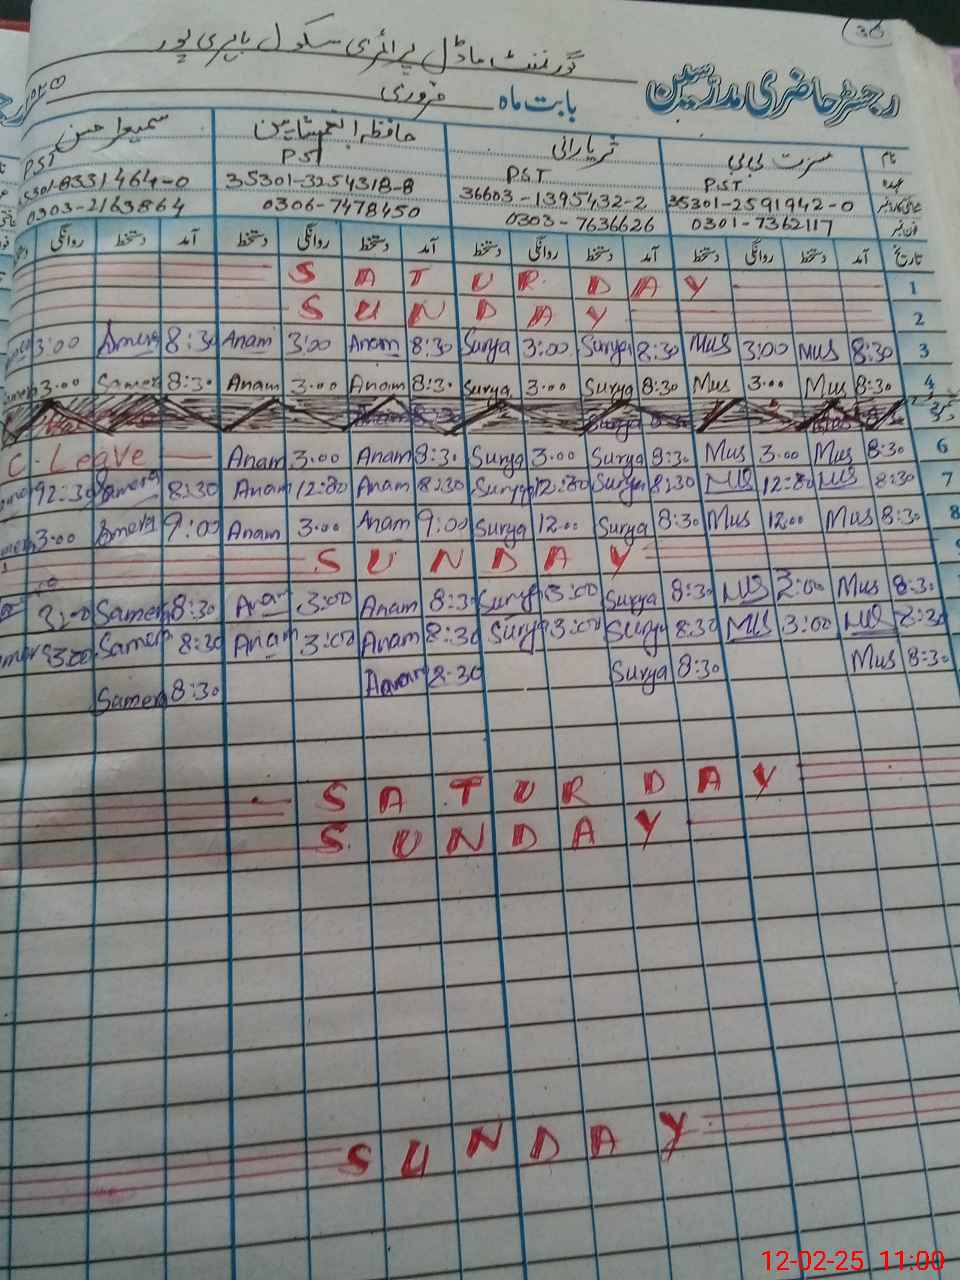 36
گورنمنٹ ماڈل پرائمری سکول
رجسٹر حاضری مدرسین
بابت ماہ فروری
نام مسرت بی بی ثریا رانی حافظہ انعم شاہین سمیعرا حسن
عہدہ PST PST PST PST
35301-2591942-0 36603-1395432-2 35301-3254318-8 35301-8331464-0
فون نمبر 0301-7362117 0303-7636626 0306-7478450 0303-2163864
تاریخ آمد دستخط روانگی دستخط آمد دستخط روانگی دستخط آمد دستخط روانگی دستخط آمد دستخط روانگی
SATURDAY 1
SUNDAY 2
3:00 Smera 8:30 Anam 3:00 Anam 8:30 Surya 3:00 Surya 8:30 Mus 3:00 Mus 8:30 3
3.00 Samera 8:30 Anam 3.00 Anam 8:30 Surya 3.00 Surya 8:30 Mus 3.00 Mus 8:30 4
C. Leave Anam 3.00 Anam 8:30 Surya 3.00 Surya 8:30 Mus 3.00 Mus 8:30 6
Samera 8:30 Anam 12:30 Anam 8:30 Surya 12:30 Surya 8:30 Mus 12:30 Mus 8:30 7
3:00 Smera 9:00 Anam 3.00 Anam 9:00 Surya 12.00 Surya 8:30 Mus 12.00 Mus 8:30 8
SUNDAY
3:00 Samera 8:30 Anam 3:00 Anam 8:30 Surya 3:00 Surya 8:30 Mus 3:00 Mus 8:30
3:00 Samera 8:30 Anam 3:00 Anam 8:30 Surya 3:00 Surya 8:30 Mus 3:00 Mus 8:30
Samera 8:30 Anam 8:30 Surya 8:30 Mus 8:30
SATURDAY
SUNDAY
SUNDAY
12-02-25 11:00